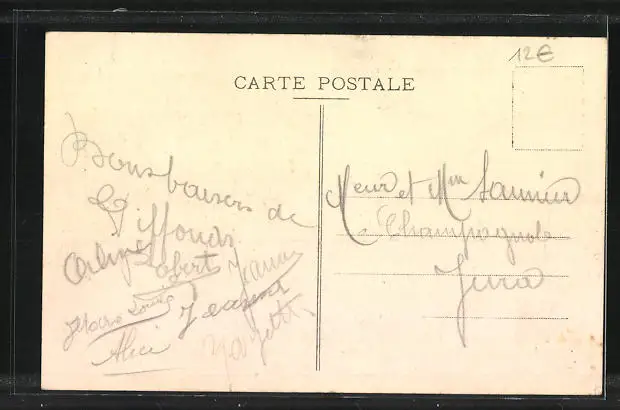 12€
CARTE POSTALE
Bons baisers de
Giffonds
Robert Jeanne
Marie Louise Jeanne
Alice
Meur et Mm Saunier
Champagnole
Jura